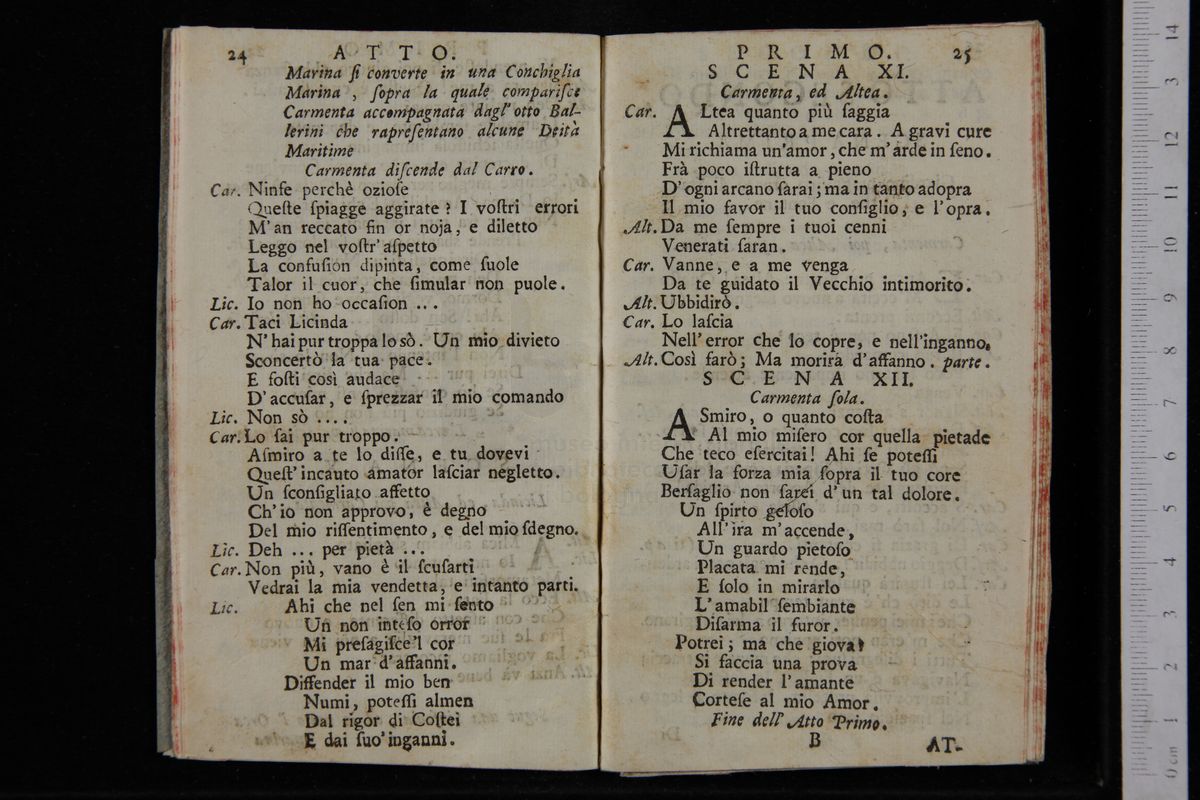 24 ATTO.
Marina ſi converte in una Conchiglia
Marina, ſopra la quale compariſce
Carmenta accompagnata dagl' otto Bal-
lerini che rapreſentano alcune Deità
Maritime
Carmenta diſcende dal Carro.
Car. Ninfe perchè ozioſe
Queſte ſpiagge aggirate? I voſtri errori
M'an reccato fin or noja, e diletto
Leggo nel voſtr'aſpetto
La confuſion dipinta, come ſuole
Talor il cuor, che ſimular non puole.
Lic. Io non ho occaſion ...
Car. Taci Licinda
N'hai pur troppa lo sò. Un mio divieto
Sconcertò la tua pace.
E foſti così audace
D'accuſar, e ſprezzar il mio comando
Lic. Non sò ....
Car. Lo ſai pur troppo.
Aſmiro a te lo diſſe, e tu dovevi
Queſt'incauto amator laſciar negletto.
Un ſconſigliato affetto
Ch'io non approvo, è degno
Del mio riſſentimento, e del mio ſdegno.
Lic. Deh ... per pietà ...
Car. Non più, vano è il ſcuſarti
Vedrai la mia vendetta, e intanto parti.
Lic. Ahi che nel ſen mi ſento
Un non inteſo orror
Mi preſagiſce'l cor
Un mar d'affanni.
Diffender il mio ben
Numi, poteſſi almen
Dal rigor di Coſtei
E dai ſuo'inganni.
PRIMO. 25
SCENA XI.
Carmenta, ed Altea.
Car. ALtea quanto più ſaggia
Altrettanto a me cara. A gravi cure
Mi richiama un'amor, che m'arde in ſeno.
Frà poco iſtrutta a pieno
D'ogni arcano ſarai; ma in tanto adopra
Il mio favor il tuo conſiglio, e l'opra.
Alt. Da me ſempre i tuoi cenni
Venerati ſaran.
Car. Vanne, e a me venga
Da te guidato il Vecchio intimorito.
Alt. Ubbidirò.
Car. Lo laſcia
Nell'error che lo copre, e nell'inganno.
Alt. Così farò; Ma morirà d'affanno. parte.
SCENA XII.
Carmenta ſola.
ASmiro, o quanto coſta
Al mio miſero cor quella pietade
Che teco eſercitai! Ahi ſe poteſſi
Uſar la forza mia ſopra il tuo core
Berſaglio non ſarei d'un tal dolore.
Un ſpirto geloſo
All'ira m'accende,
Un guardo pietoſo
Placata mi rende,
E ſolo in mirarlo
L'amabil ſembiante
Diſarma il furor.
Potrei; ma che giova?
Si faccia una prova
Di render l'amante
Corteſe al mio Amor.
Fine dell'Atto Primo.
B AT-